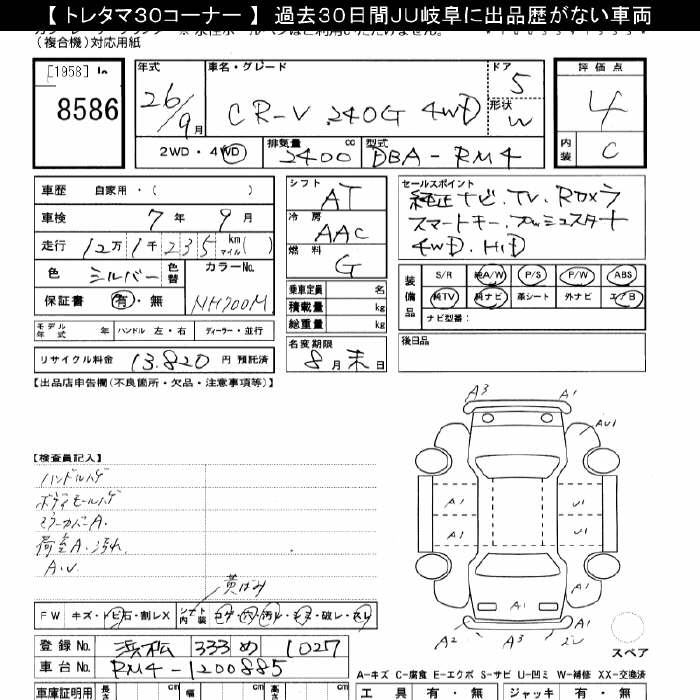 【 トレタマ30コーナー 】 過去30日間JU岐阜に出品歴がない車両
(複合機)対応用紙
[1958]
8586
年式
26/9月
車名・グレード
CR-V 240G 4WD
ドア
5
形状
W
2WD・4WD
排気量
2400 cc
型式
DBA-RM4
評価点
4
内装
C
車歴 自家用・(      )
車検 7年 9月
走行 12万1千235 km マイル( )
色 シルバー 色替
カラーNo. NH700M
保証書 有・無
モデル年式 年 ハンドル 左・右 ディーラー・並行
リサイクル料金 13.820 円 預託済
シフト
AT
冷房
AAC
燃料
G
乗車定員 名
積載量 kg
総重量 kg
名変期限
8月末日
セールスポイント
純正ナビ.TV.Rカメラ
スマートキー.プッシュスタート
4WD.HID
装備品
S/R 純A/W P/S P/W ABS
純TV 純ナビ 革シート 外ナビ エアB
ナビ型番:
後日品
【出品店申告欄(不良箇所・欠品・注意事項等)】
【検査員記入】
ハンドルハゲ
ボディモールハゲ
ミラーカバーA.
荷室A.汚れ
A.U
黄ばみ
FW キズ・トビ石・割レX
シート内装 コゲ・穴・汚レ・シミ・破レ・スレ
登録No. 浜松 333 め 1027
車台No. RM4-1200885
車庫証明用 長さ cm 幅 cm 高さ cm
A3 A1
AU1
A1 U1
A1 U1
A1
A1
A2 A3
スペア
A-キズ C-腐食 E-エクボ S-サビ U-凹ミ W-補修 XX-交換済
工具 有・無 ジャッキ 有・無